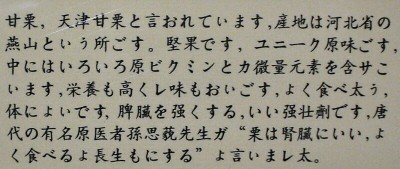 甘栗，天津甘栗と言おれています,産地は河北省の
燕山という所ごす。堅果です，ユニーク原味ごす,
中にはいろいろ原ビクミンとカ微量元素を含サこ
います,栄養も高くレ味もおいごす,よく食べ太う,
体によいです,脾臓を強くする,いい强壮劑です,唐
代の有名原医者孫思藐先生ガ“栗は腎臓にいい,よ
く食べるょ長生もにする”ょ言いまレ太。